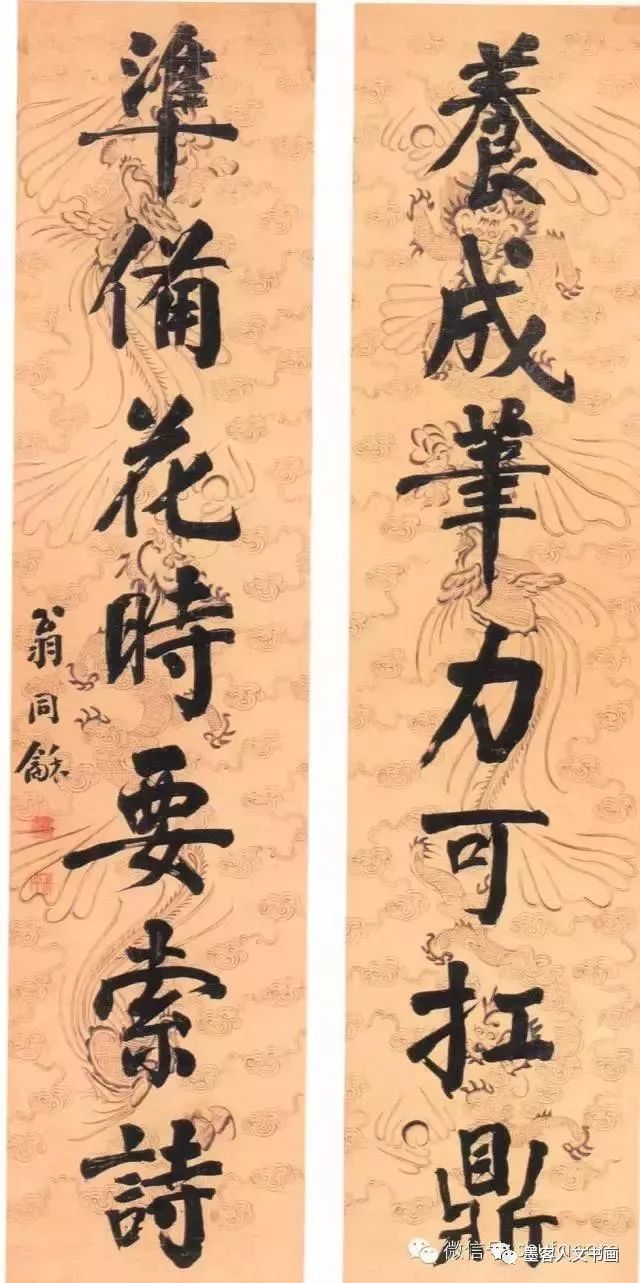 養成筆力可扛鼎
準備花時要索詩
翁同龢
墨客人文书画